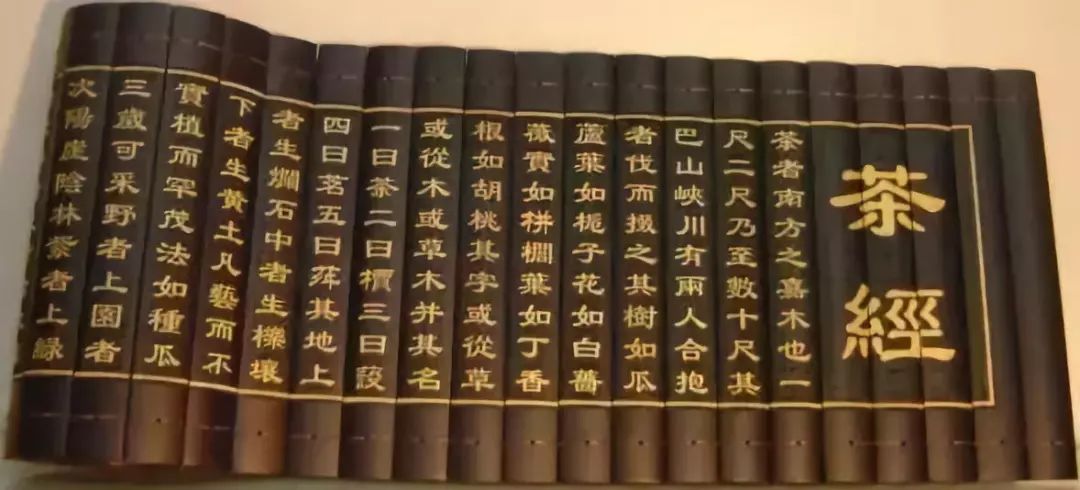 茶經
茶者南方之嘉木也一
尺二尺乃至數十尺其
巴山峽川有兩人合抱
者伐而掇之其樹如瓜
蘆葉如梔子花如白薔
薇實如栟櫚葉如丁香
根如胡桃其字或從草
或從木或草木并其名
一曰茶二曰檟三曰蔎
四曰茗五曰荈其地上
者生爛石中者生櫟壤
下者生黃土凡藝而不
實植而罕茂法如種瓜
三歲可采野者上園者
次陽崖陰林紫者上綠